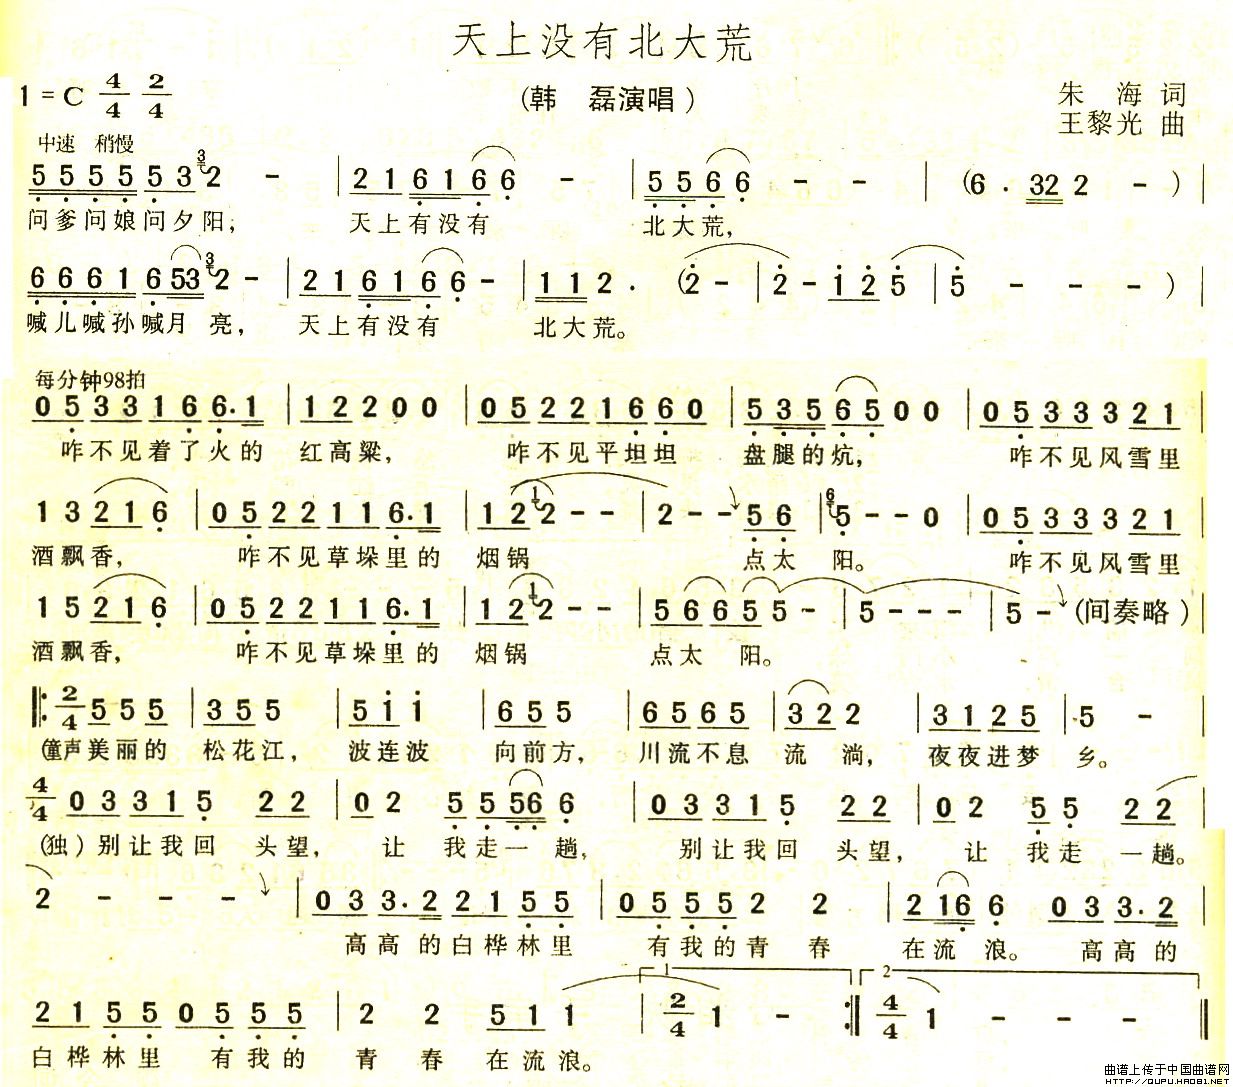 天上没有北大荒
1=C 4/4 2/4
(韩 磊演唱)
朱 海 词
王黎光 曲
中速 稍慢
5 5 5 5 5 5 3 3 2 - | 2 1 6 1 6 6 - | 5 5 6 6 - - | (6 · 3 2 2 - ) |
问爹问娘问夕阳; 天上有没有 北大荒,
6 6 6 1 6 5 3 3 2 - | 2 1 6 1 6 6 - | 1 1 2 · (2 - | 2 - 1 2 5 | 5 - - - ) |
喊儿喊孙喊月 亮, 天上有没有 北大荒。
每分钟98拍
0 5 3 3 1 6 6 · 1 | 1 2 2 0 0 | 0 5 2 2 1 6 6 0 | 5 3 5 6 5 0 0 | 0 5 3 3 3 2 1
咋不见着了火的 红高粱, 咋不见平坦坦 盘腿的炕, 咋不见风雪里
1 3 2 1 6 | 0 5 2 2 1 1 6 · 1 | 1 2 1 2 - - | 2 - - 5 6 | 6 5 - - 0 | 0 5 3 3 3 2 1
酒飘香, 咋不见草垛里的 烟锅 点太 阳。 咋不见风雪里
1 5 2 1 6 | 0 5 2 2 1 1 6 · 1 | 1 2 1 2 - - | 5 6 6 5 5 - | 5 - - - | 5 - (间奏略) |
酒飘香, 咋不见草垛里的 烟锅 点太 阳。
|: 2/4 5 5 5 | 3 5 5 | 5 1 1 | 6 5 5 | 6 5 6 5 | 3 2 2 | 3 1 2 5 | 5 - |
(童声)美丽的 松花江, 波连波 向前方, 川流不息 流 淌, 夜夜进梦 乡。
4/4 0 3 3 1 5 2 2 | 0 2 5 5 5 6 6 | 0 3 3 1 5 2 2 | 0 2 5 5 2 2 |
(独)别让我回 头望, 让 我走一 趟, 别让我回 头望, 让 我走 一趟。
2 - - - | 0 3 3 · 2 2 1 5 5 | 0 5 5 5 2 2 | 2 1 6 6 0 3 3 · 2 |
高高的白桦林里 有我的青 春 在流 浪。 高高的
2 1 5 5 0 5 5 5 | 2 2 5 1 1 | 1 2/4 1 - :| 2 4/4 1 - - - ||
白桦林里 有我的 青 春 在流浪。
曲谱上传于中国曲谱网
HTTP://QUPU.HAO81.NET